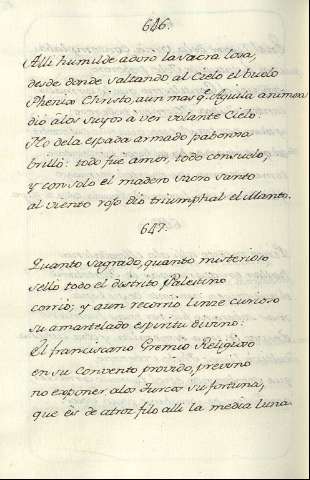 646.
Alli humilde adoró la sacra losa,
desde donde saltando al Cielo el buelo
Phenix Christo, aun mas q.e Aguila animosa
dio â los suyos â ver volante Cielo.
No de la espada armado
brilló: todo fue amor, todo consuelo;
y con solo el madero sacro santo
al viento roso dio triumphal el Manto.
647.
Quanto sagrado, quanto misterioso
sello todo el distrito Palestino
corrió; y aun recorrio linze curioso
su amartelado espiritu divino:
El franciscano Gremio Religioso
en su Convento provido, previno
no exponer a los Turcos su fortuna,
que és de atroz filo alli la media luna.